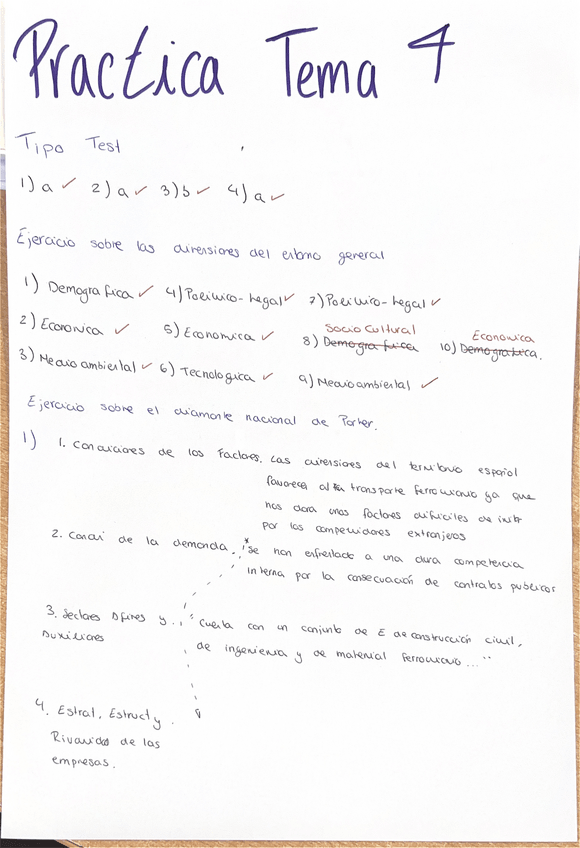 Practica Tema 4
Tipo Test
1) a ✓ 2) a ✓ 3) b ✓ 4) a ✓
Ejercicio sobre las dimensiones del entorno general
1) Demografica ✓ 4) Politico-Legal ✓ 7) Politico-Legal ✓
2) Economica ✓ 5) Economica ✓ 8) Demografica Socio Cultural 10) Demografica. Economica
3) Medio ambiental ✓ 6) Tecnologica ✓ 9) Medio ambiental ✓
Ejercicio sobre el diamante nacional de Porter.
1) 1. Condiciones de los Factores. Las dimensiones del territorio español
favorecen al transporte ferroviario ya que
nos dara unos factores dificiles de imitar
por los competidores extranjeros
2. Condi de la demanda.. "se han enfrentado a una dura competencia
interna por la consecuación de contratos publicos
3. Sectores Afines y.. "cuenta con un conjunto de E de construcción civil,
Auxiliares
de ingenieria y de material ferroviario ..."
4. Estrat, Estruct y.
Rivalidad de las
empresas.